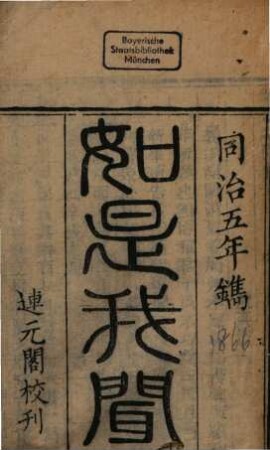 Bayerische
Staatsbibliothek
München
同治五年鐫
1866
如是我聞
連元閣校刊